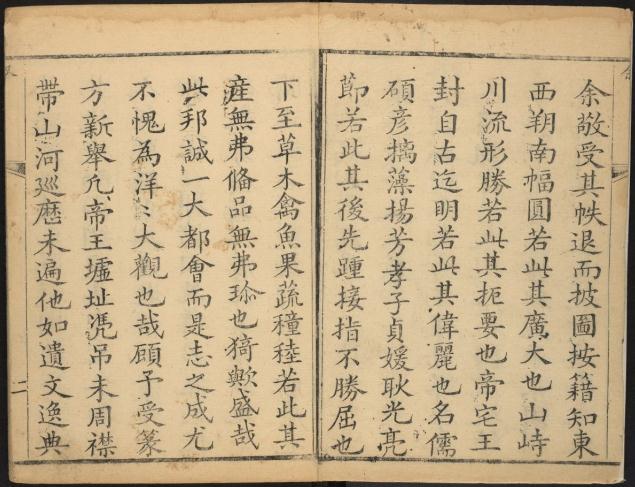 余敬受其帙退而披圖按籍知東
西朔南幅圓若此其廣大也山峙
川流形勝若此其扼要也帝宅王
封自古迄明若此其偉麗也名儒
碩彥摛藻揚芳孝子貞媛耿光亮
節若此其後先踵接指不勝屈也
下至草木禽魚果蔬穜稑若此其
産無弗俻品無弗珎也猗歟盛哉
此邦誠一大都會而是志之成尤
不愧為洋〻大觀也哉顧予受篆
方新舉凢帝王墟址凴吊未周襟
帶山河廵歷未遍他如遺文逸典
二